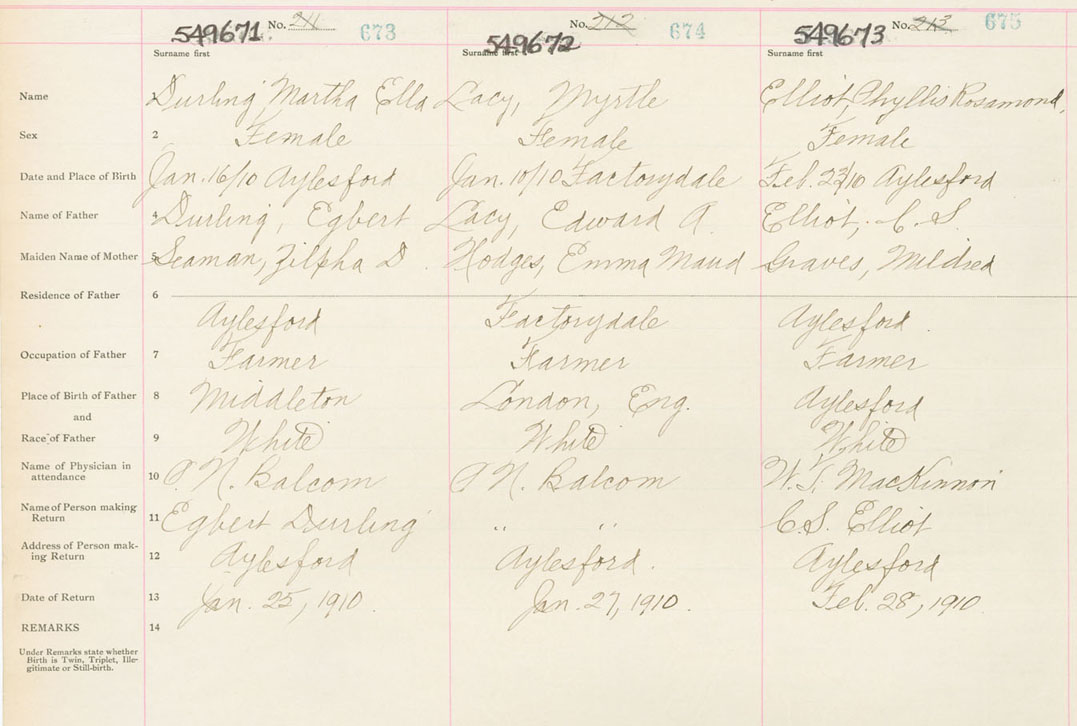 549671. No. 211 673 549672 No. 212 674 549673 No. 213 675
Surname first Surname first Surname first
Name 1 Durling Martha Ella Lacy, Myrtle Elliot, Phyllis Rosamond,
Sex 2 Female Female Female
Date and Place of Birth 3 Jan. 16/10 Aylesford Jan. 10/10 Factorydale Feb. 23/10 Aylesford
Name of Father 4 Durling, Egbert Lacy, Edward A. Elliot, C. S.
Maiden Name of Mother 5 Seaman, Zilpha D. Hodges, Emma Maud Graves, Mildred
Residence of Father 6
Aylesford Factorydale Aylesford.
Occupation of Father 7 Farmer Farmer Farmer
Place of Birth of Father 8 Middleton London, Eng. Aylesford
and
Race of Father 9 White White White
Name of Physician in
attendance 10 P. N. Balcom P N. Balcom W. S. MacKinnon
Name of Person making
Return 11 Egbert Durling " " C. S. Elliot
Address of Person mak-
ing Return 12 Aylesford Aylesford. Aylesford
Date of Return 13 Jan. 25, 1910. Jan. 27, 1910. Feb. 28, 1910.
REMARKS 14
Under Remarks state whether
Birth is Twin, Triplet, Ille-
gitimate or Still-birth.